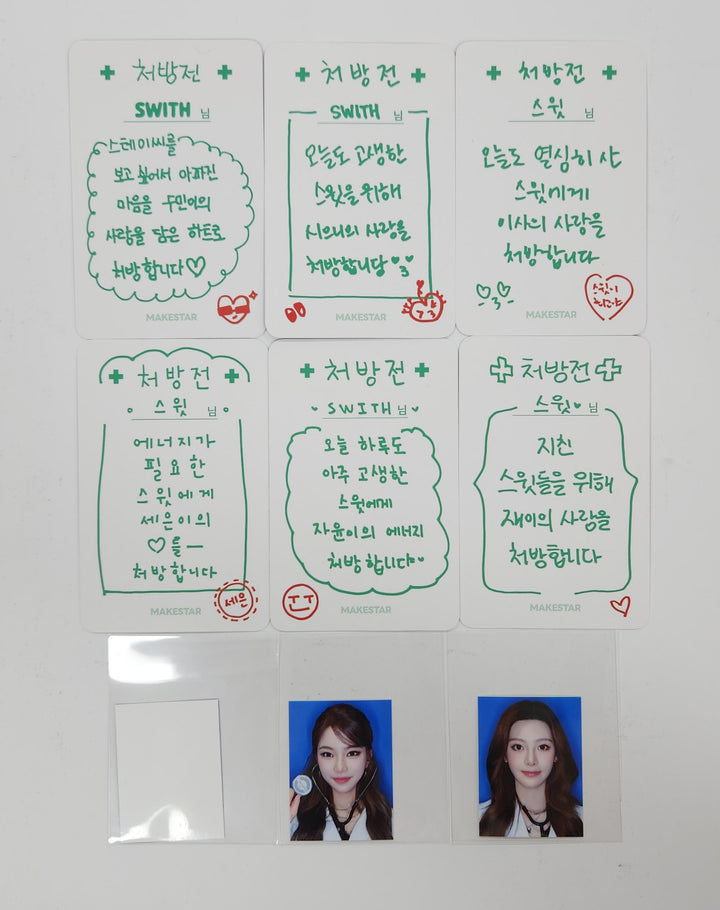 처방전
SWITH 님
스테이씨를
보고 싶어서 아파진
마음을 수민이의
사랑을 담은 하트로
처방합니다♡
MAKESTAR
처방전
SWITH 님
오늘도 고생한
스윗을 위해
시으니의 사랑을
처방합니당
MAKESTAR
처방전
스윗 님
오늘도 열심히 산
스윗에게
이사의 사랑을
처방합니다
스윗이
최고야
MAKESTAR
처방전
스윗 님
에너지가
필요한
스윗에게
세은이의
♡를
처방합니다
세은
MAKESTAR
처방전
SWITH 님
오늘 하루도
아주 고생한
스윗에게
자윤이의 에너지
처방합니다
MAKESTAR
처방전
스윗 님
지친
스윗들을 위해
재이의 사랑을
처방합니다
MAKESTAR